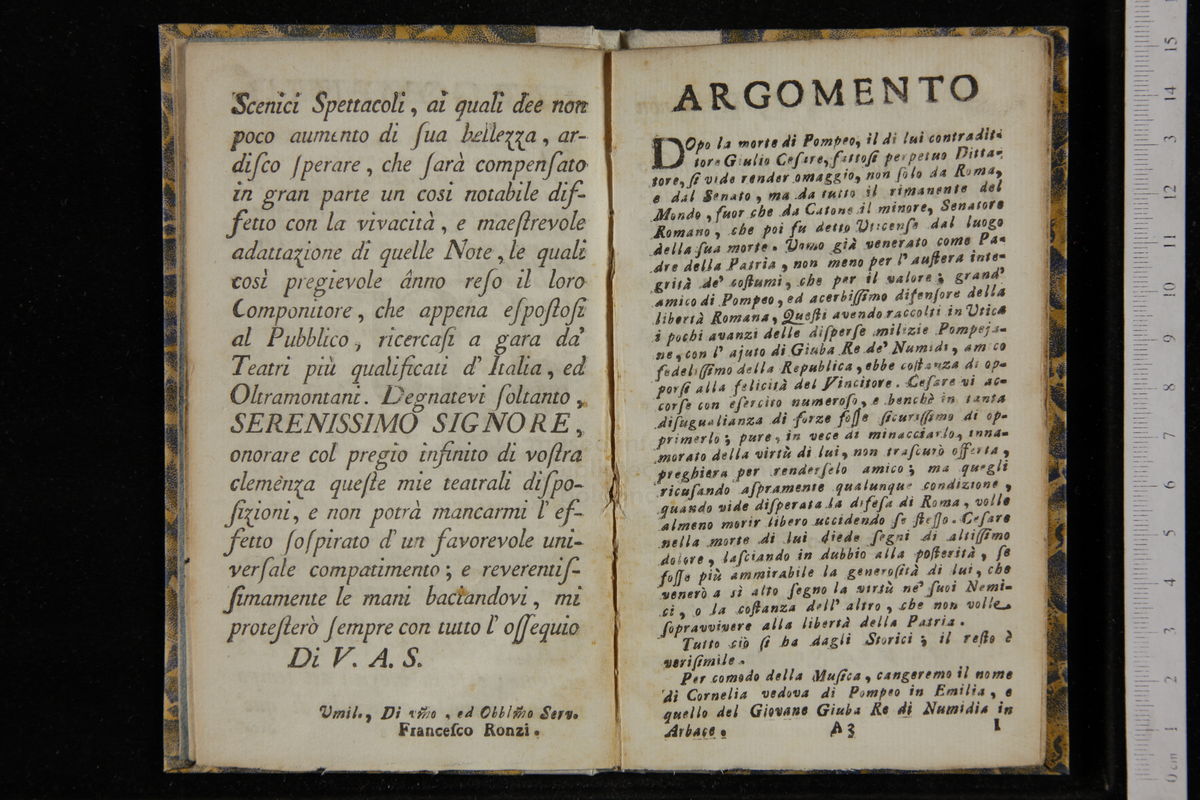 Scenici Spettacoli, ai quali dee non
poco aumento di ſua bellezza, ar-
diſco ſperare, che ſarà compenſato
in gran parte un cosi notabile dif-
fetto con la vivacità, e maeſtrevole
adattazione di quelle Note, le quali
così pregievole ânno reſo il loro
Componitore, che appena eſpoſtoſi
al Pubblico, ricercaſi a gara da'
Teatri più qualificati d' Italia, ed
Oltramontani. Degnatevi ſoltanto,
SERENISSIMO SIGNORE,
onorare col pregio infinito di voſtra
clemênza queſte mie teatrali diſpo-
ſizioni, e non potrà mancarmi l' ef-
fetto ſoſpirato d' un favorevole uni-
verſale compatimento; e reverentiſ-
ſimamente le mani baciandovi, mi
proteſterò ſempre con tutto l' oſſequio
Di V. A. S.
Umil., Di vm̃o, ed Obblm̃o Serv.
Franceſco Ronzi.
ARGOMENTO
DOpo la morte di Pompeo, il di lui contradit-
tore Giulio Ceſare, fattoſi perpetuo Ditta-
tore, ſi vide render omaggio, non ſolo da Roma,
e dal Senato, ma da tutto il rimanente del
Mondo, fuor che da Catone il minore, Senatore
Romano, che poi fu detto Uticenſe dal luogo
della ſua morte. Uomo già venerato come Pa-
dre della Patria, non meno per l' auſtera inte-
grità de' coſtumi, che per il valore; grand'
amico di Pompeo, ed acerbiſſimo difenſore della
libertà Romana, Queſti avendo raccolti in Utica
i pochi avanzi delle diſperſe milizie Pompeja-
ne, con l' ajuto di Giuba Re de' Numidi, amico
fedeliſſimo della Republica, ebbe coſtanza di op-
porſi alla felicità del Vincitore. Ceſare vi ac-
corſe con eſercito numeroſo, e benchè in tanta
diſugualianza di forze foſſe ſicuriſſimo di op-
primerlo; pure, in vece di minacciarlo, inna-
morato della virtù di lui, non traſcurò offerta,
preghiera per renderſelo amico; ma quegli
ricuſando aſpramente qualunque condizione,
quando vide diſperata la difeſa di Roma, volle
almeno morir libero uccidendo ſe ſteſſo. Ceſare
nella morte di lui diede ſegni di altiſſimo
dolore, laſciando in dubbio alla poſterità, ſe
foſſe più ammirabile la generoſità di lui, che
venerò a sì alto ſegno la virtù ne' ſuoi Nemi-
ci, o la coſtanza dell' altro, che non volle
ſopravvivere alla libertà della Patria.
Tutto ciò ſi ha dagli Storici; il reſto è
veriſimile.
Per comodo della Muſica, cangeremo il nome
di Cornelia vedova di Pompeo in Emilia, e
quello del Giovane Giuba Re di Numidia in
Arbace.
A 3
I